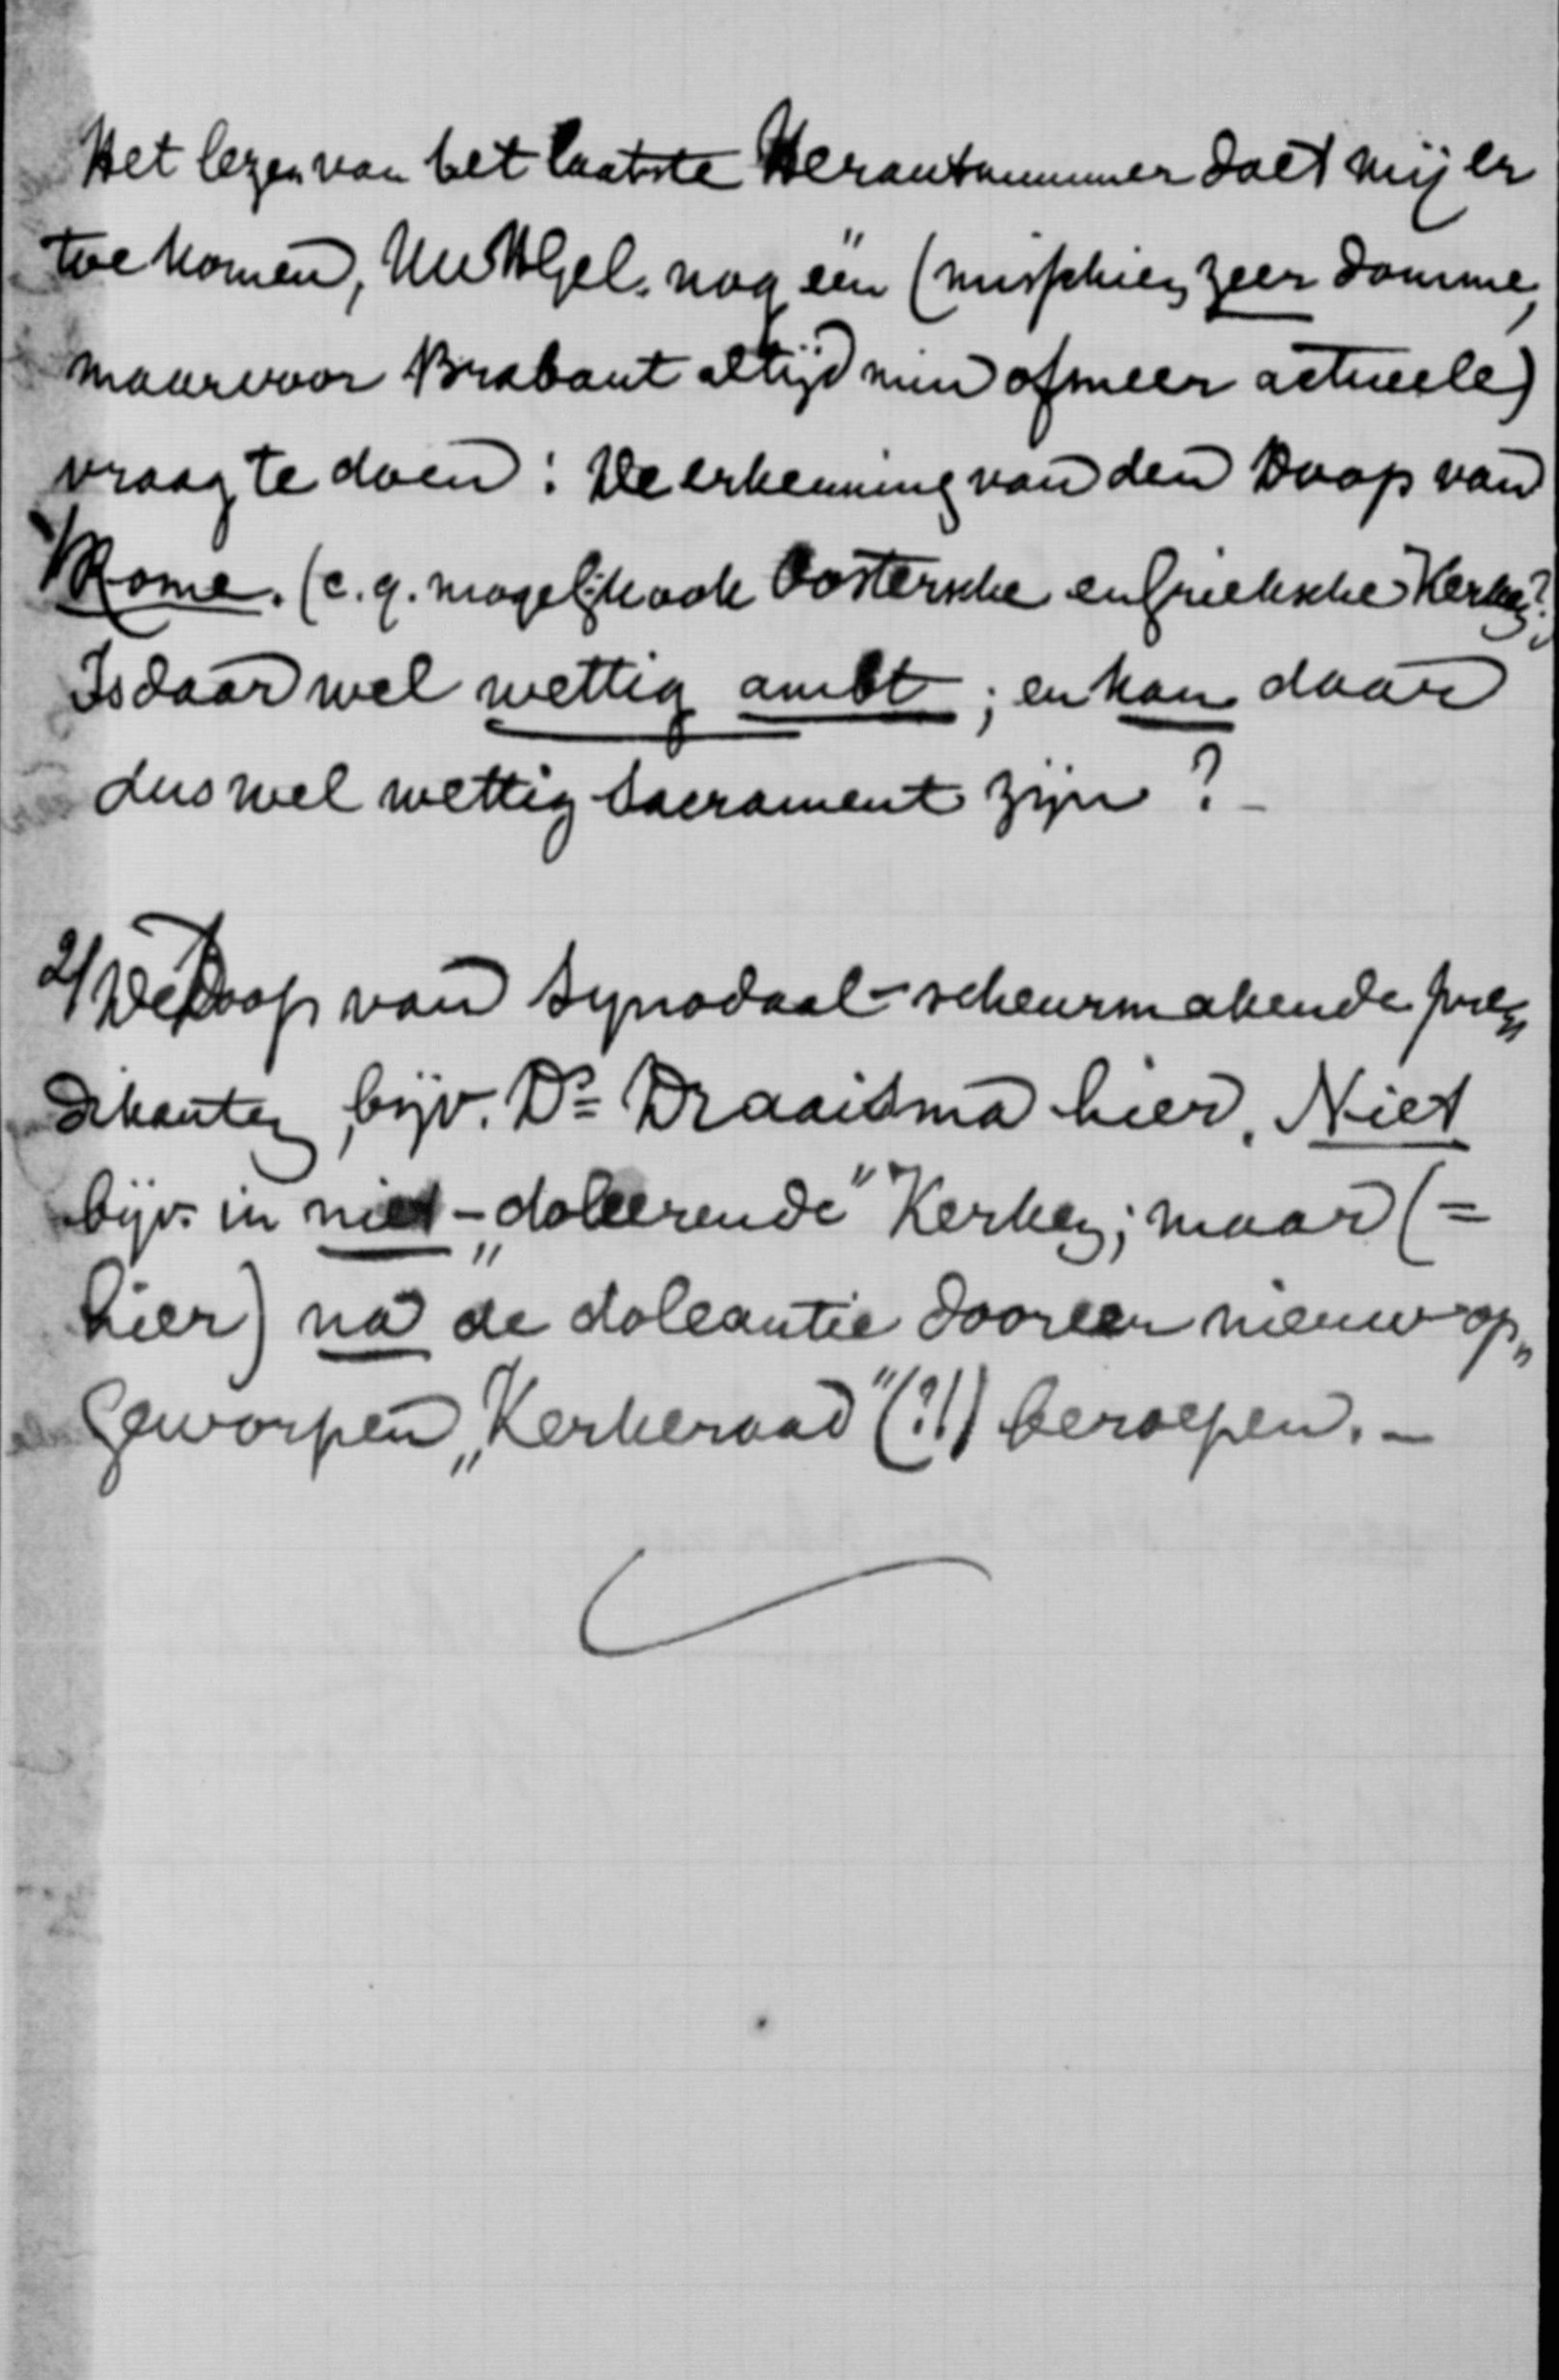 Het lezen van het laatste Herautnummer doet mij er
toe komen, UwHGel. nog één (misschien zeer domme,
maar voor Brabant altijd min of meer actueele)
vraag te doen: De erkenning van den Doop van
1/ Rome. (c.q. mogelijk ook Oostersche en Grieksche Kerken?)
Is daar wel wettig ambt; en kan daar
dus wel wettig Sacrament zijn? –
2/ De Doop van Synodaal-scheurmakende pre„
dikanten, bijv. Ds Draaisma hier. Niet
bijv. in niet-„doleerende" Kerken; maar (=
hier) na de doleantie door een nieuw op„
geworpen „Kerkeraad" (?!) beroepen. –